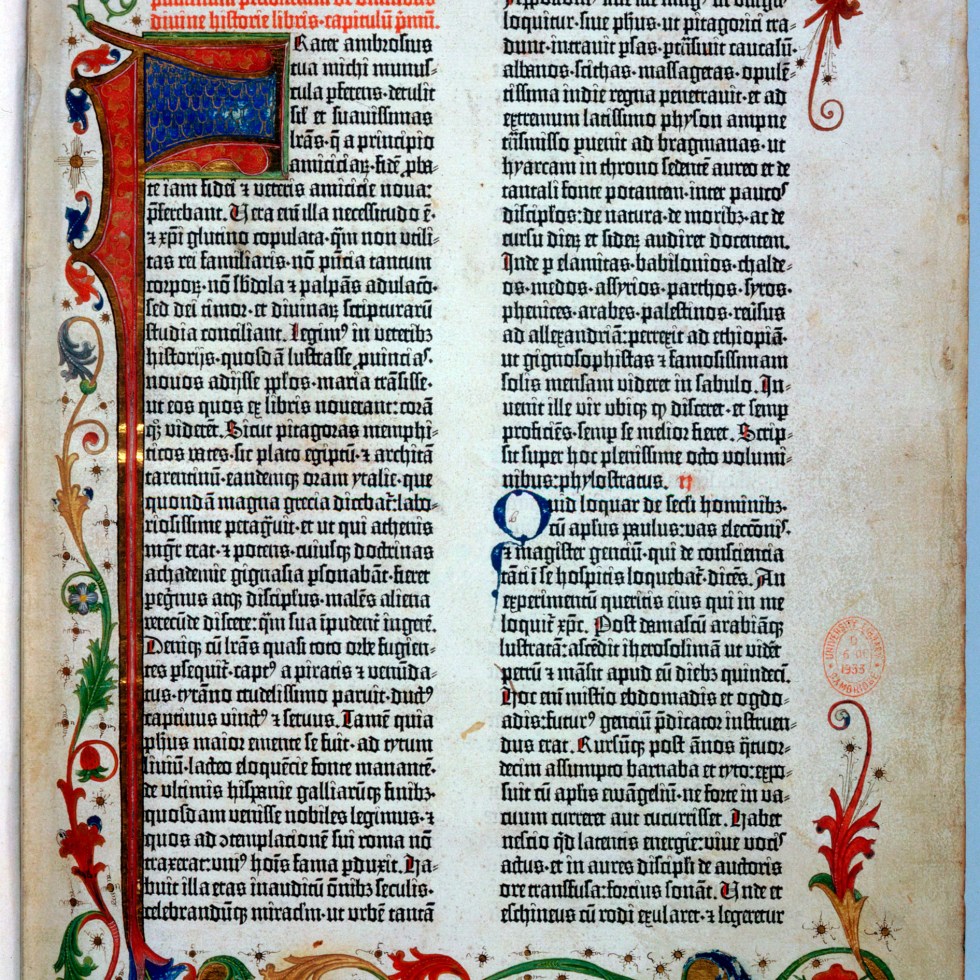 divine historie libris·capitulū pͥmū.
Frater ambrosius
tua michi munus-
cula pferens·detulit
sil et suavissimas
lrās·q̄ a principio
amiciciaꝝ·fidē ꝓba-
te iam fidei ⁊ veteris amicicie nova:
pferebant. Vera eni illa necessitudo ē·
⁊ xpi glutino copulata·qm̄ non utili-
tas rei familiaris·nō pn̄cia tantum
corpoꝝ·nō sbdola ⁊ palpās adulacō·
sed dei timor·et divinaꝝ scripturarū
studia conciliant. Legimꝰ in veteribꝫ
historijs·quosdā lustrasse ꝓvincias·
novos adijsse pp̄los·maria trāsisse·
ut eos quos ex libris noverant: corā
qꝫ viderēt. Sicut pitagoras memphi-
ticos vates·sic plato egiptū·⁊ architā
tarentinū·eandemqꝫ oram ytalie·que
quondā magna grecia dicebat̄: labo-
riosissime peragͣvit·et ut qui athenis
mgr̄ erat·⁊ potens·cuiusqꝫ doctrinas
achademie gignasia psonabāt·fieret
pegͥnus atqꝫ discipl̄us·malēs aliena
verecūde discere: qm̄ sua īpudent̄ ingerē.
Deniqꝫ cū lrās quasi toto orbe fugien-
tes pseqūit̄·captꝰ a piratis ⁊ venūda-
tus·tyrāno crudelissimo paruit·ductꝰ
captivus vinctꝰ ⁊ servus. Tamē quia
ph̄us maior emente se fuit·ad tytum
liviū·lacteo eloquēcie fonte manantē·
de ultimis hispanie galliarūqꝫ finibꝫ·
quosdam venisse nobiles legimus·⁊
quos ad ꝯtemplacionē sui roma nō
traxerat: uniꝰ hoīs fama pduxit. Ha-
buit illa etas inauditū ōnibꝫ seculis·
celebrandūqꝫ miraclm̄·ut urbē tantā
loquitur·sive ph̄us·ut pitagorici tra-
dunt·intravit psas·ptn̄sivit caucasū·
albanos·scithas·massagetas·opulē-
tissima indie regna penetravit·et ad
extremum latissimo physon ampne
trāsmisso puenit ad bragmanas·ut
hyarcam in throno sedentē aureo et de
tantali fonte potantem·inter paucos
discipl̄os: de natura·de moribꝫ·ac de
cursu dieꝝ et sideꝝ audiret docentem.
Inde p elamitas·babilonios·chalde-
os·medos·assyrios·parthos·syros·
phenices·arabes·palestinos·reūsus
ad allexandriā: perrexit ad ethiopiā·
ut gignosophistas ⁊ famosissimam
solis mensam videret in sabulo. In-
venit ille vir ubiqꝫ qꝫ disceret·et semp
proficiēs·semp se melior fieret. Scrip-
sit super hoc plenissime octo volumi-
nibus: phylostratus. II
Quid loquar de secli hominibꝫ·
cū apl̄us paulus: vas elecciōnis·
⁊ magister genciū·qui de consciencia
tāti ī se hospitis loquebat̄·dicēs. An
experimentū queritis eius qui in me
loquit̄ xpc. Post damascū arabiāqꝫ
lustratā: ascēdit iherosolimā ut videt
petrū ⁊ māsit apud eū diebꝫ quindecī.
Hoc eni mistio ebdomadis et ogdo-
adis: futurꝰ genciū pdicator instruen-
dus erat. Rursūqꝫ post ānos qͣtuor-
decim assumpto barnaba et tyto: expo-
suit cū apl̄is ewāgeliū·ne forte in va-
cuum curreret aut cucurrisset. Habet
nescio qd latentis energie: vive vocis
actus·et in aures discipl̄i de auctoris
ore transfusa: forcius sonāt. Unde et
eschineus cū rodi exularet·⁊ legeretur
UNIVERSITY LIBRARY
1933
CAMBRIDGE